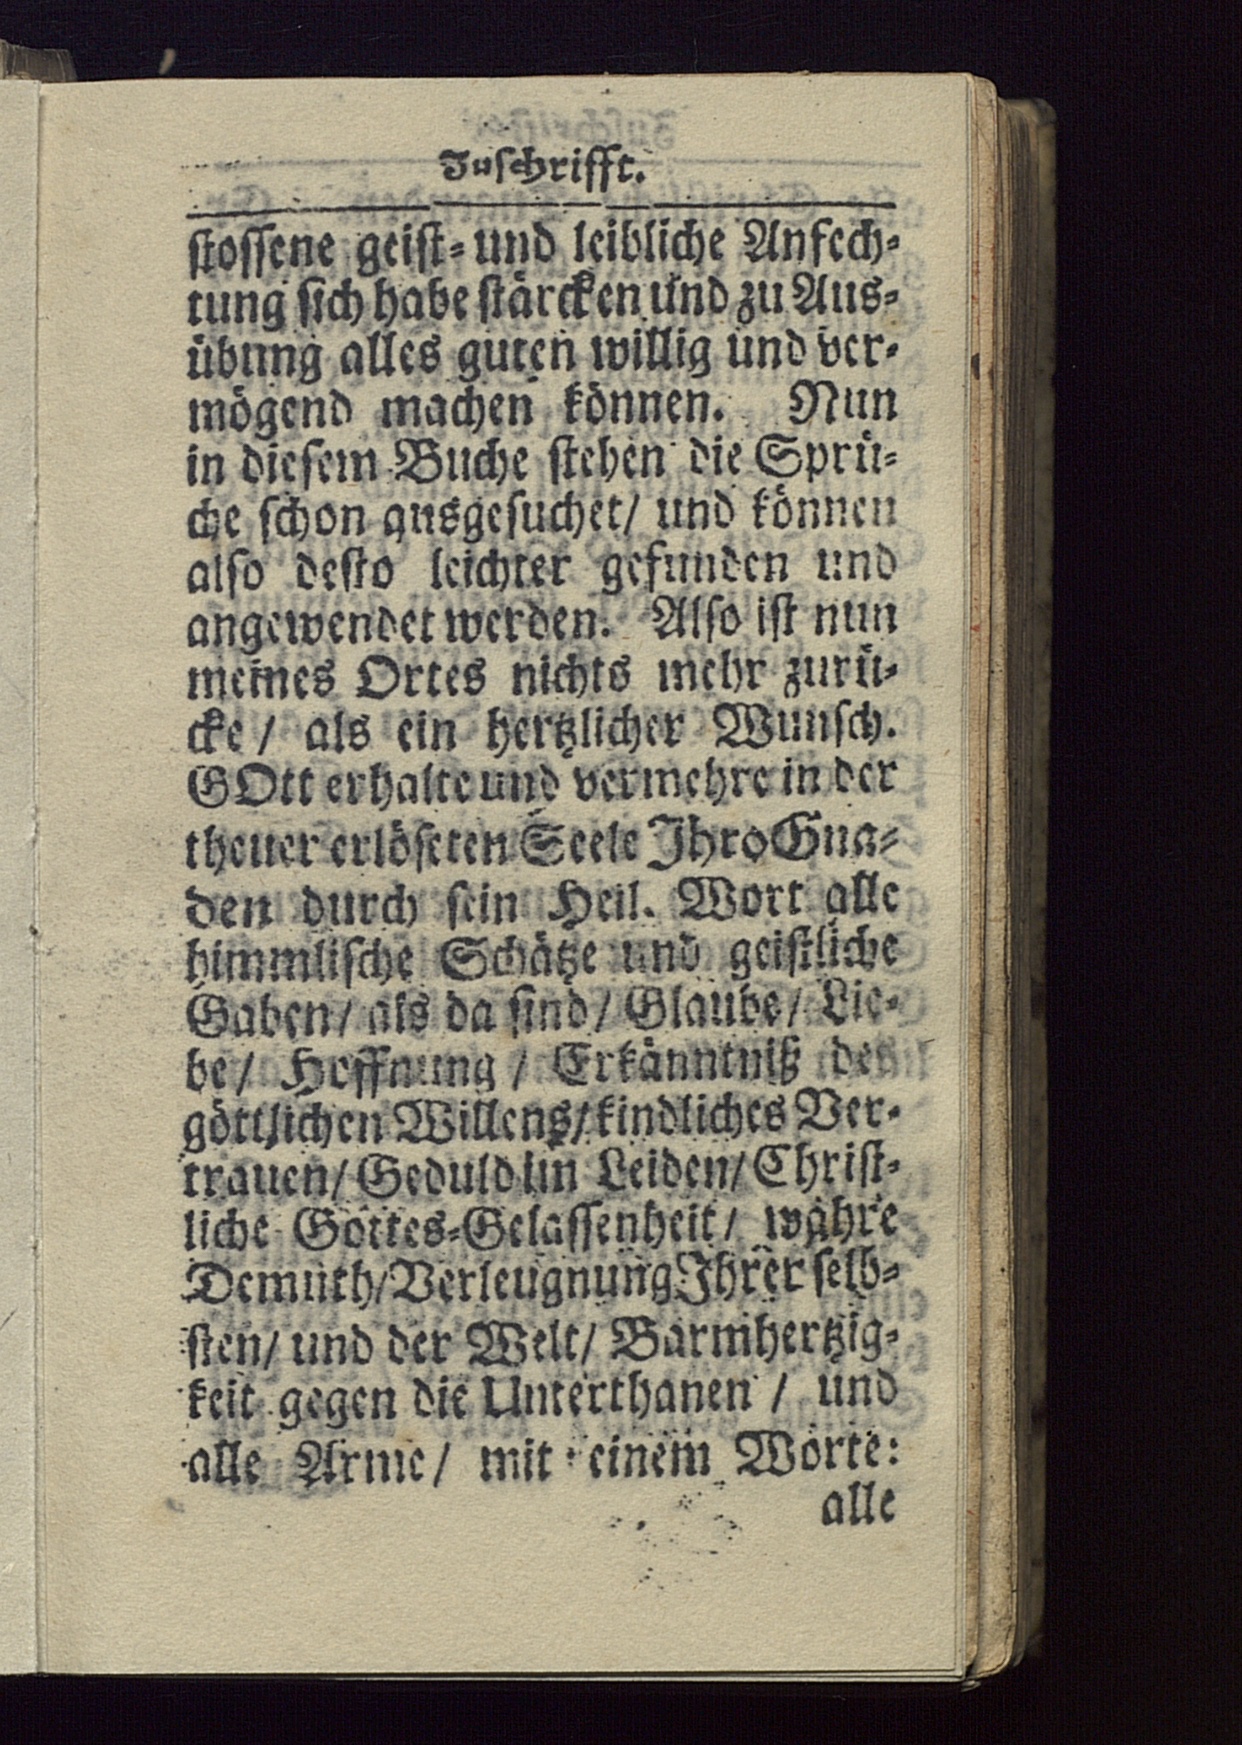 Zuschrifft.
stossene geist- und leibliche Anfech-
tung sich habe stärcken und zu Aus-
übung alles guten willig und ver-
mögend machen können. Nun
in diesem Buche stehen die Sprü-
che schon ausgesuchet/ und können
also desto leichter gefunden und
angewendet werden. Also ist nun
meines Ortes nichts mehr zurü-
cke / als ein hertzlicher Wunsch.
GOtt erhalte und vermehre in der
theuer erlöseten Seele Ihro Gna-
den durch sein Heil. Wort alle
himmlische Schätze und geistliche
Gaben/ als da sind/ Glaube/ Lie-
be/ Hoffnung / Erkänntniß des
göttlichen Willens/ kindliches Ver-
trauen/ Geduld im Leiden/ Christ-
liche Gottes-Gelassenheit/ wahre
Demuth/ Verleugnung Ihrer selb-
sten/ und der Welt/ Barmhertzig-
keit gegen die Unterthanen / und
alle Arme/ mit einem Worte:
alle